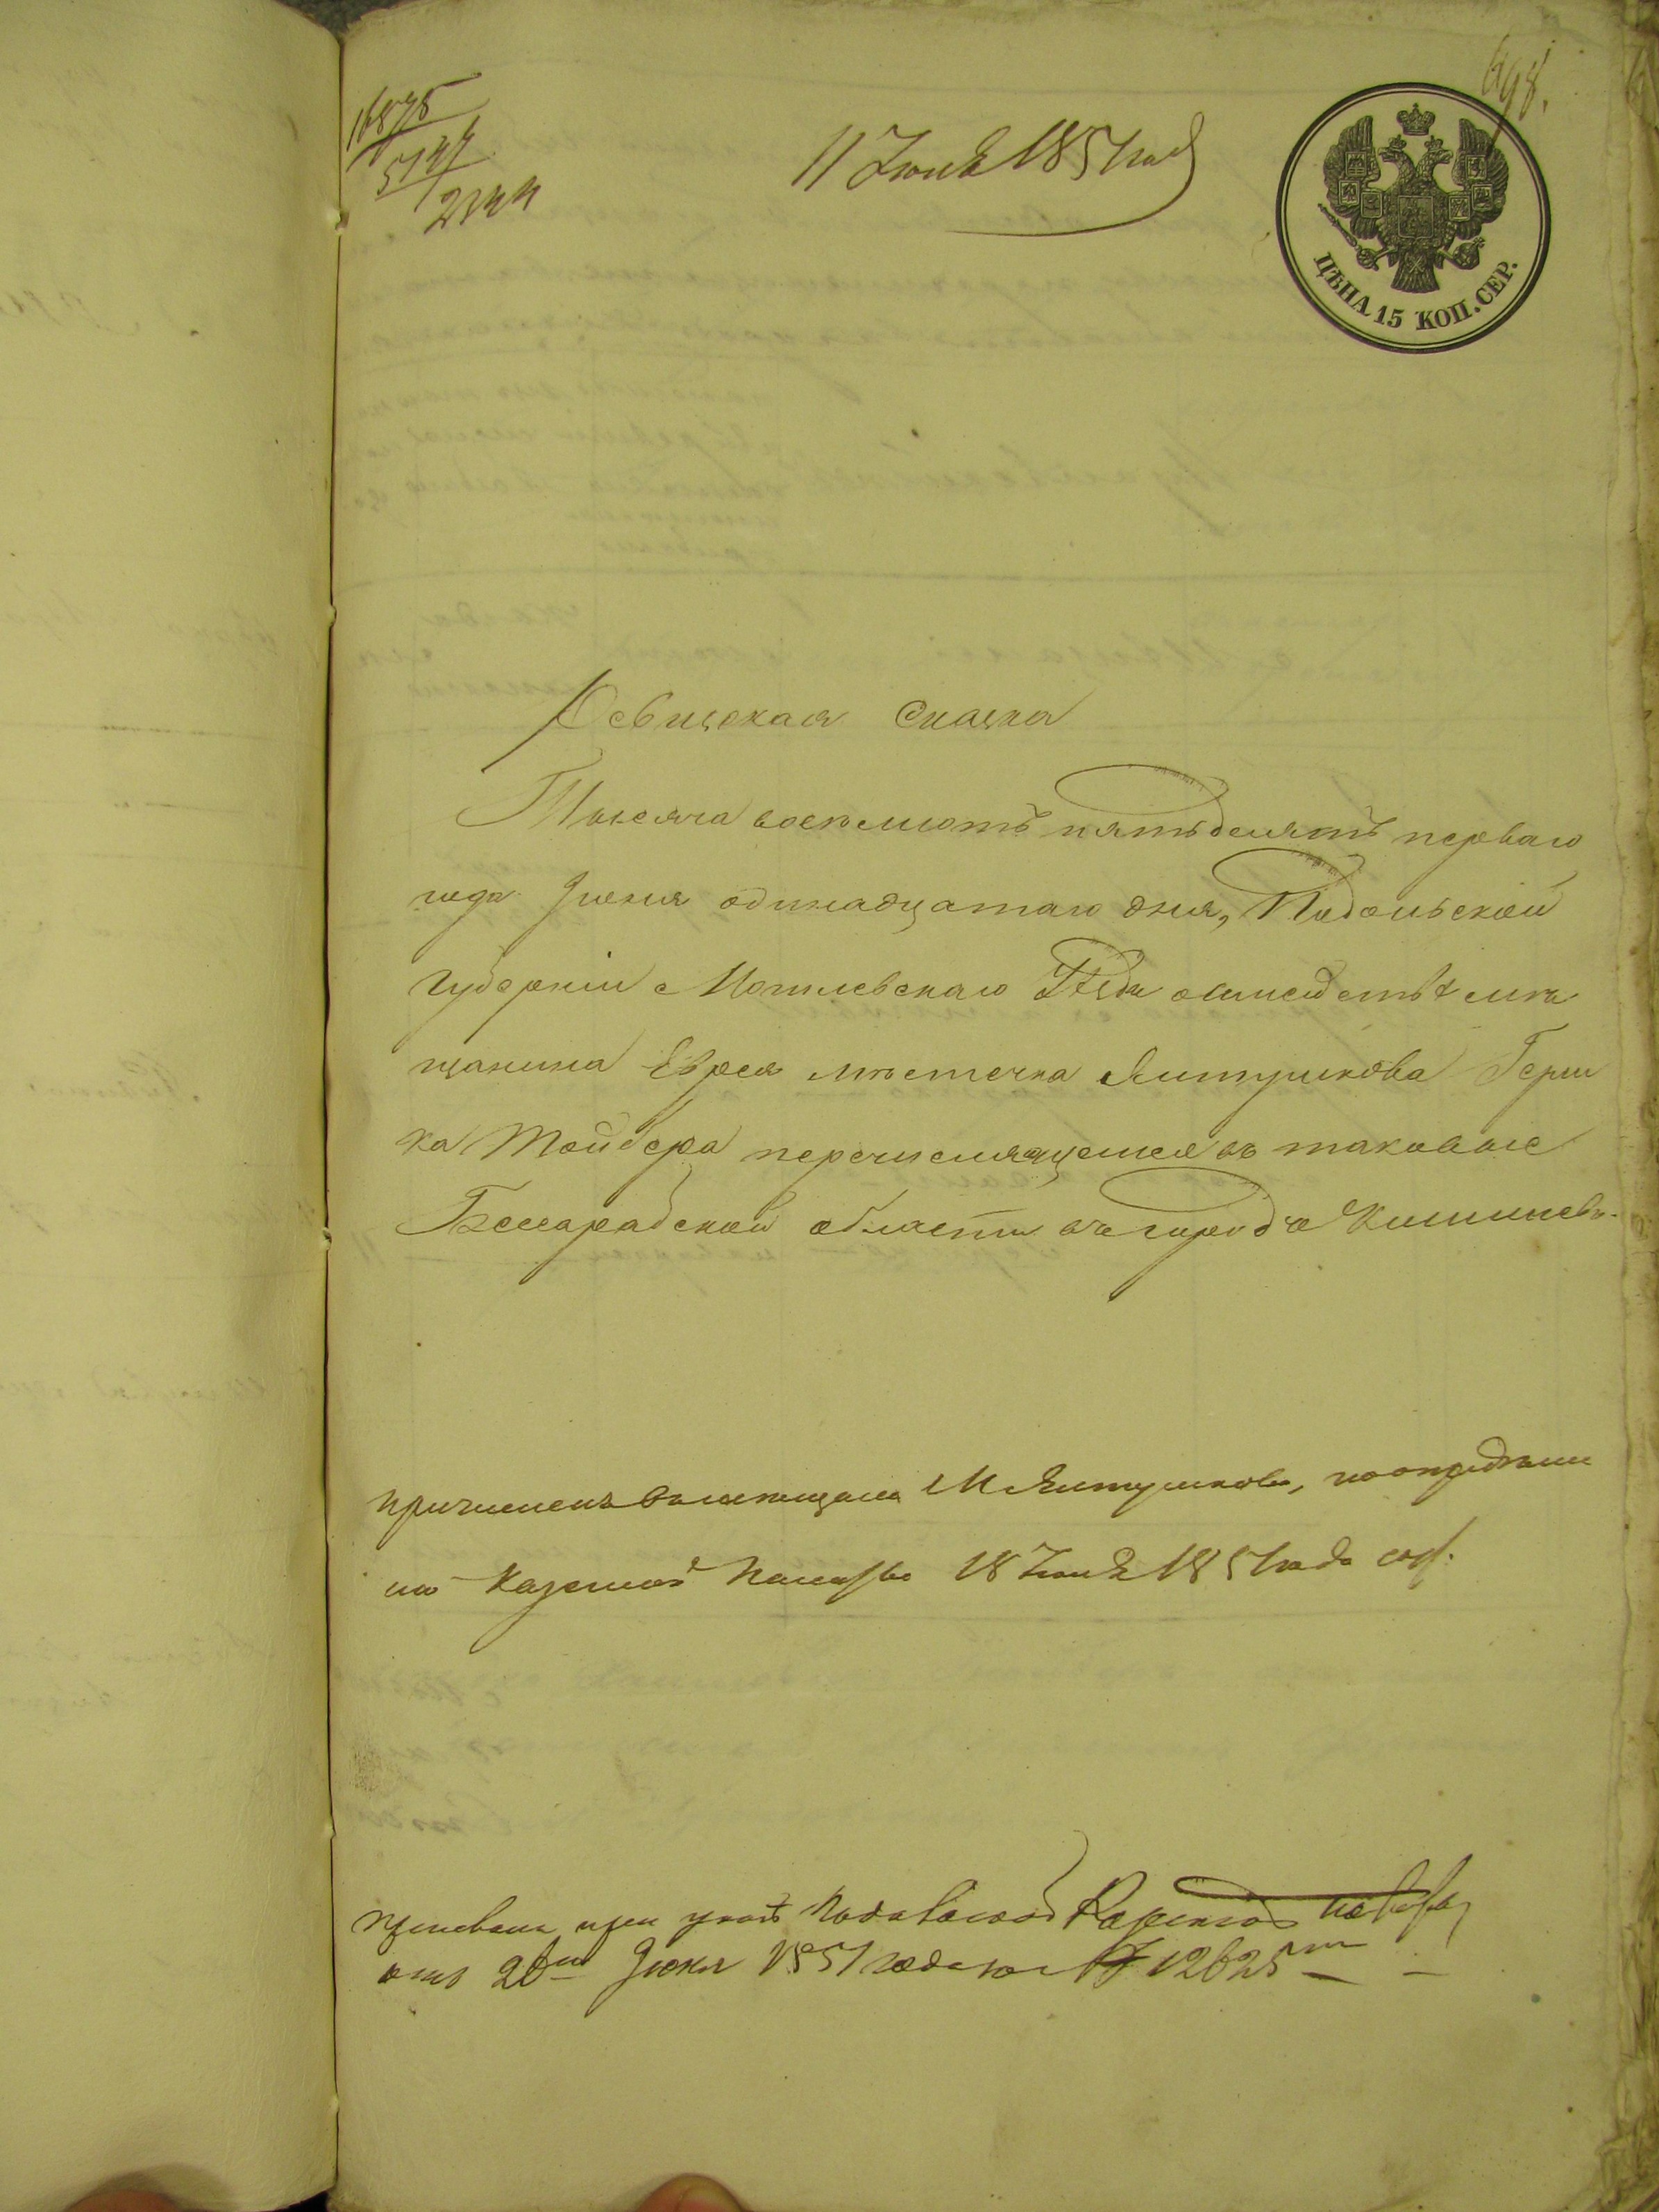 698.
16875
5144
2144
11 Іюня 1851 года
ЦѢНА 15 КОП. СЕР.
Ревизская Сказка
Тысяча восемьсотъ пятьдесятъ перваго
года Іюня одинадцатаго дня, Подольской
Губерніи Могилевскаго Уѣзда о семействѣ мѣ
щанина Еврея мѣстечка Ялтушкова Герш
ка Тойбера перечисляющемся въ таковые
Бессарабской области въ городъ Кишиневъ.
причисленъ въ мѣщане М Ялтушкова, по опредѣлен
ію Казенной Палаты 18 Іюня 1851 года
при указѣ Казенной Палаты
отъ 26го Іюня 1851 года за № 12625мъ